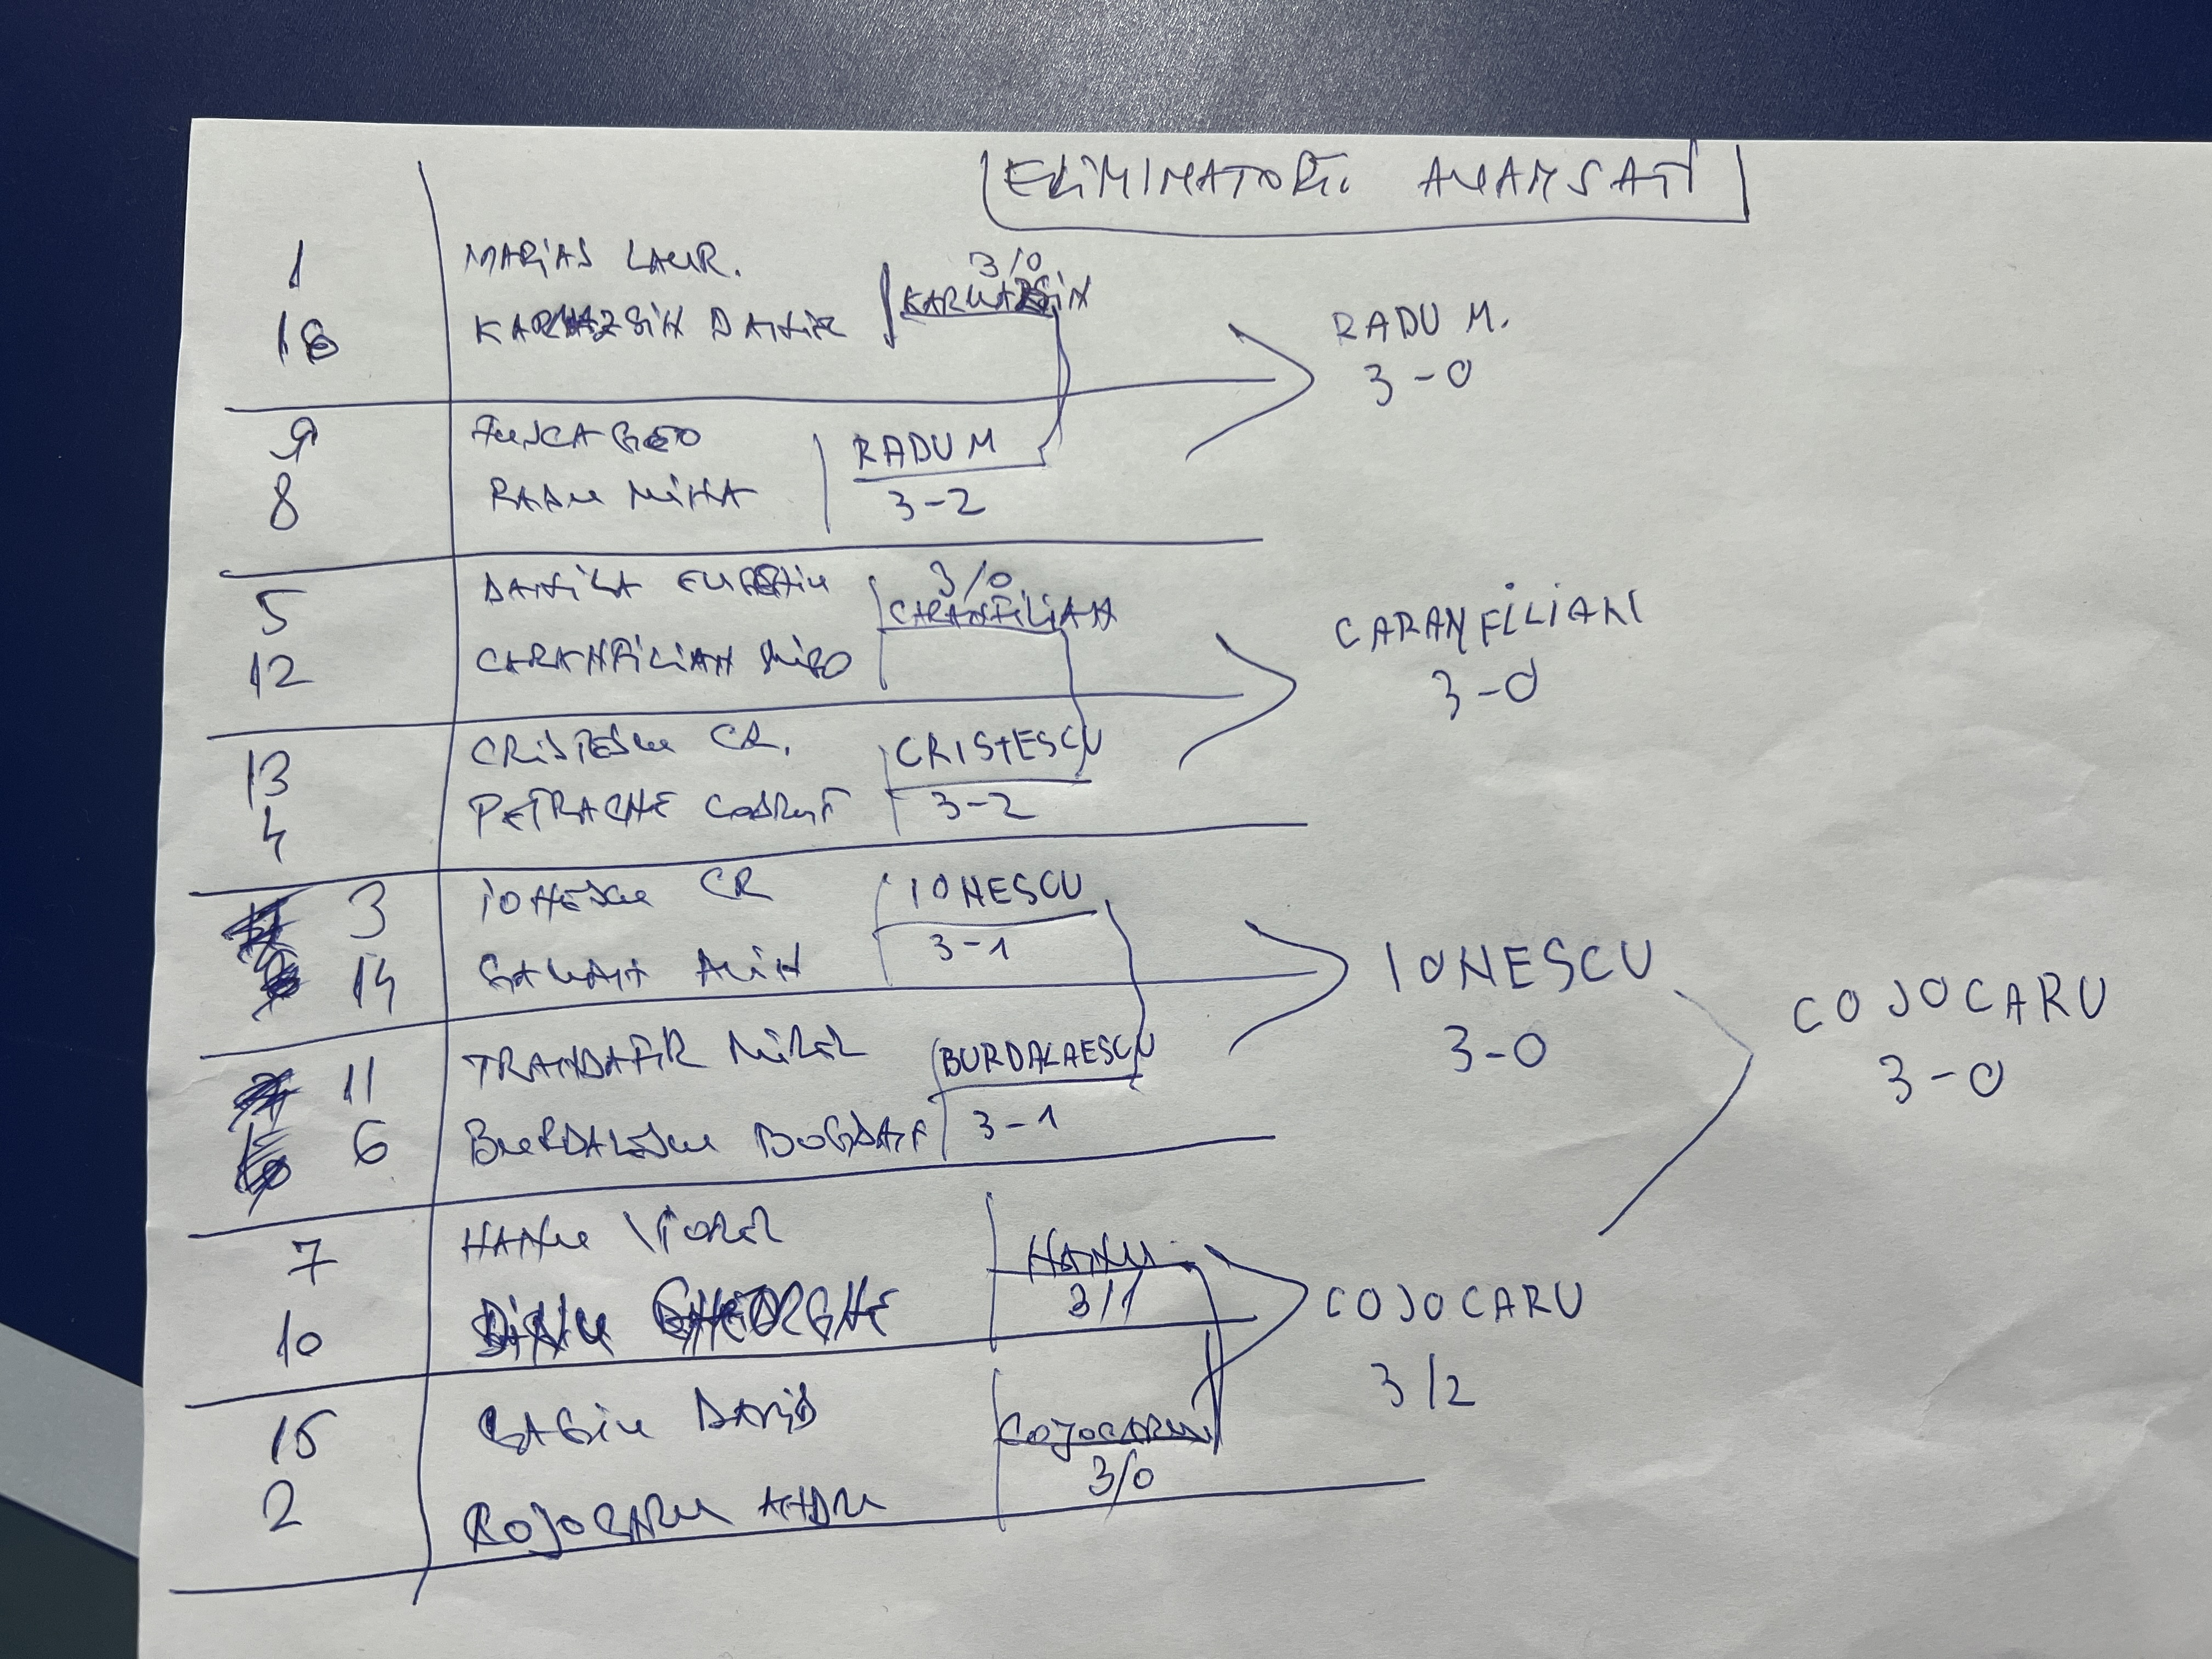 ELIMINATORII AVANSATI
1 MARIAS LAUR.
3/0
KARMAZSIN
16 KARMAZSIN DANIEL
RADU M.
3-0
9 FUSCA GEO
RADU M
8 RADU MIHA
3-2
5 DANILA EUGENIU
3/0
CARANFILIAN
12 CARANFILIAN MIRO
CARANFILIAN
3-0
13 CRISTESCU CR.
CRISTESCU
4 PETRACHE CODRUT
3-2
3 IONESCU CR
IONESCU
3-1
14 ALIN
IONESCU
3-0
11 TRANDAFIR MIREL
BURDALAESCU
6 BURDALESCU BOGDAN
3-1
COJOCARU
3-0
7 HANU VIOREL
HANU
3/1
10 DINU GHEORGHE
COJOCARU
3/2
15 DAVID
COJOCARU
3/0
2 COJOCARU ANDRU